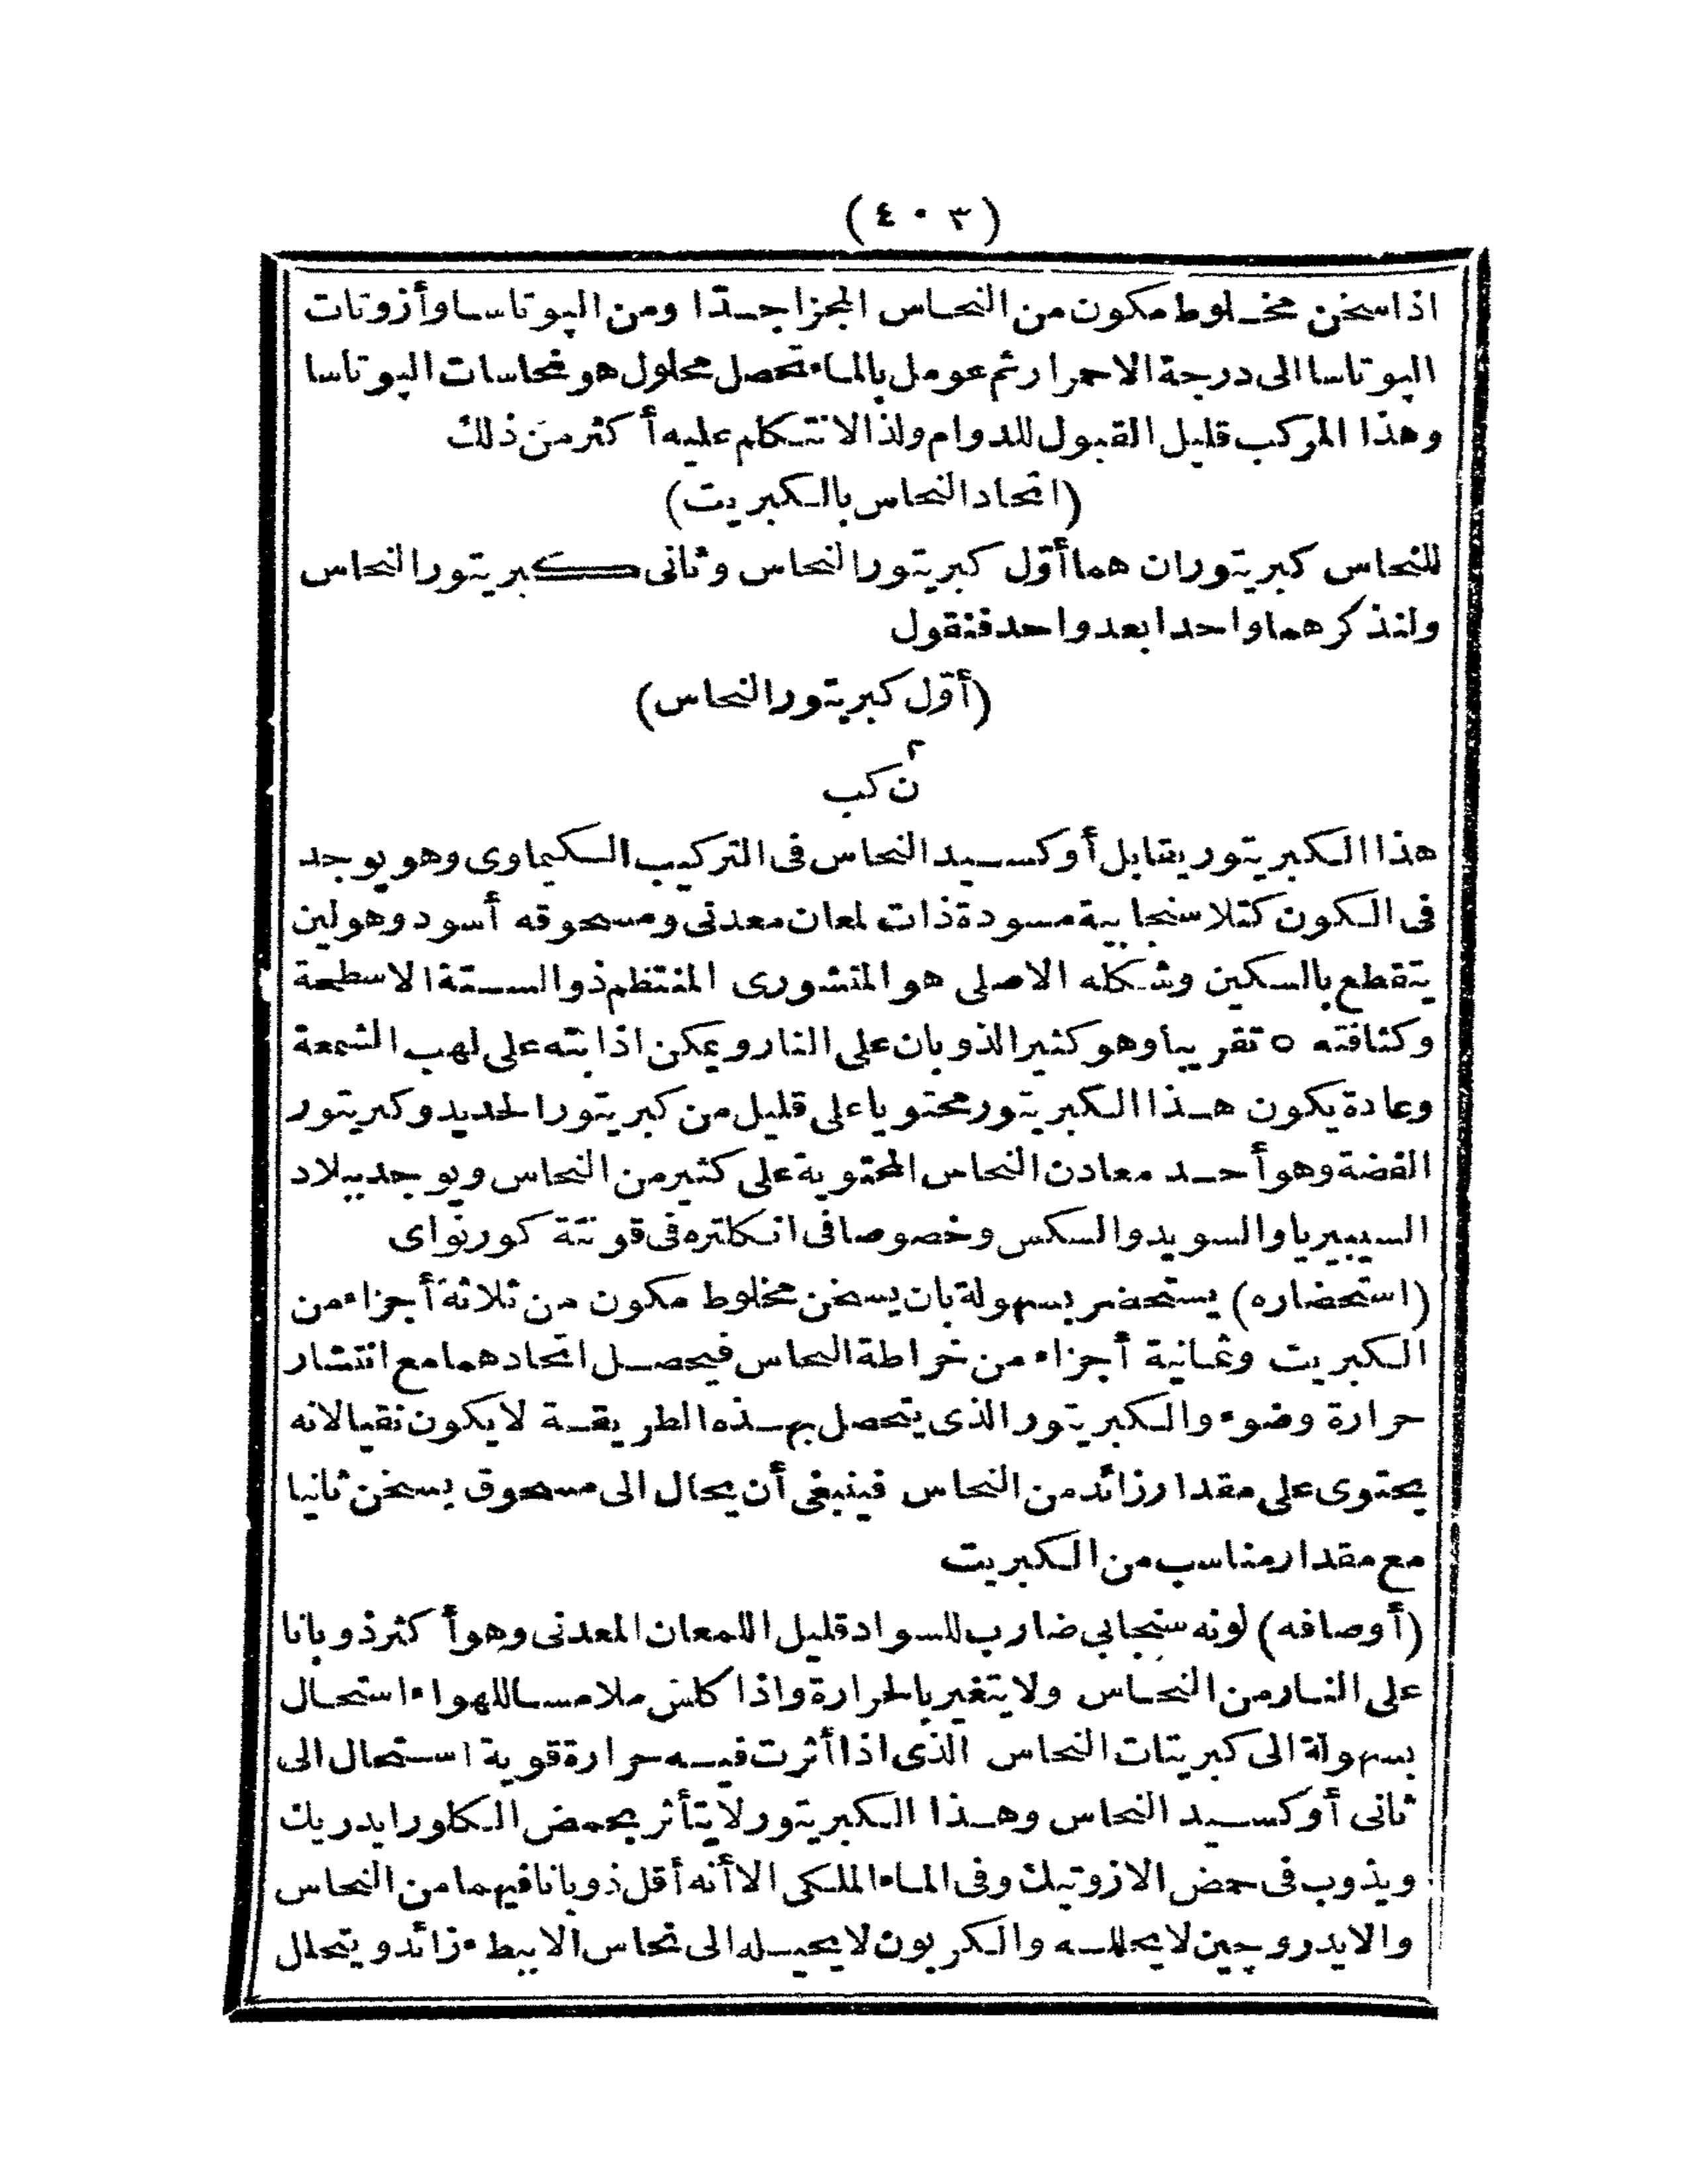 (٤٠٣)
اذا سخن مخلوط مكون من النحاس المجزا جدّا ومن الپوتاسا وأزوتات
الپوتاسا الى درجة الاحمرار ثم عومل بالماء تحصل محلول هو نحاسات الپوتاسا
وهذا المركب قليل القبول للدوام ولذا لا نتكلم عليه أكثر من ذلك
(اتحاد النحاس بالكبريت)
للنحاس كبريتوران هما أوّل كبريتور النحاس وثانى كبريتور النحاس
ولنذكرهما واحدا بعد واحد فنقول
(أوّل كبريتور النحاس)
٢
ن كب
هذا الكبريتور يقابل أوكسيد النحاس فى التركيب الكيماوى وهو يوجد
فى الكون كتلا سنجابية مسودة ذات لمعان معدنى ومسحوقه أسود وهو لين
يتقطع بالسكين وشكله الاصلى هو المنشورى المنتظم ذو الستة الاسطحة
وكثافته ٥ تقريبا وهو كثير الذوبان على النار ويمكن اذابته على لهب الشمعة
وعادة يكون هذا الكبريتور محتويا على قليل من كبريتور الحديد وكبريتور
الفضة وهو أحد معادن النحاس المحتوية على كثير من النحاس ويوجد ببلاد
السيبيريا والسويد والسكس وخصوصا فى انكلتره فى قونتة كورنواى
(استحضاره) يستحضر بسهولة بان يسخن مخلوط مكون من ثلاثة أجزاء من
الكبريت وثمانية أجزاء من خراطة النحاس فيحصل اتحادهما مع انتشار
حرارة وضوء والكبريتور الذى يتحصل بهذه الطريقة لا يكون نقيا لانه
يحتوى على مقدار زائد من النحاس فينبغى أن يحال الى مسحوق يسخن ثانيا
مع مقدار مناسب من الكبريت
(أوصافه) لونه سنجابي ضارب للسواد قليل اللمعان المعدنى وهو أكثر ذوبانا
على النار من النحاس ولا يتغير بالحرارة واذا كلس ملامسا للهواء استحال
بسهولة الى كبريتات النحاس الذى اذا أثرت فيه حرارة قوية استحال الى
ثانى أوكسيد النحاس وهذا الكبريتور لا يتأثر بحمض الكلورايدريك
ويذوب فى حمض الازوتيك وفى الماء الملكى الا أنه أقل ذوبانا فيهما من النحاس
والايدروچين لا يحلله والكربون لا يحيله الى نحاس الا ببطء زائد ويتحلل